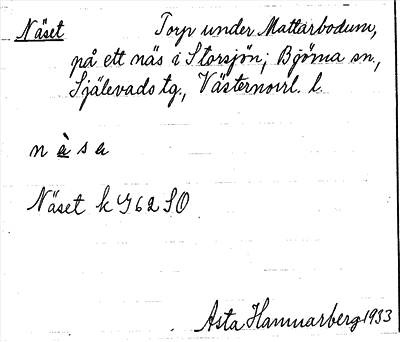 Näset Torp under Mattarbodum,
på ett näs i Storsjön; Björna sn.,
Själevads tg., Västernorrl. l.
n ä̀ s a
Näset k G 62 SO
Asta Hammarberg 1933